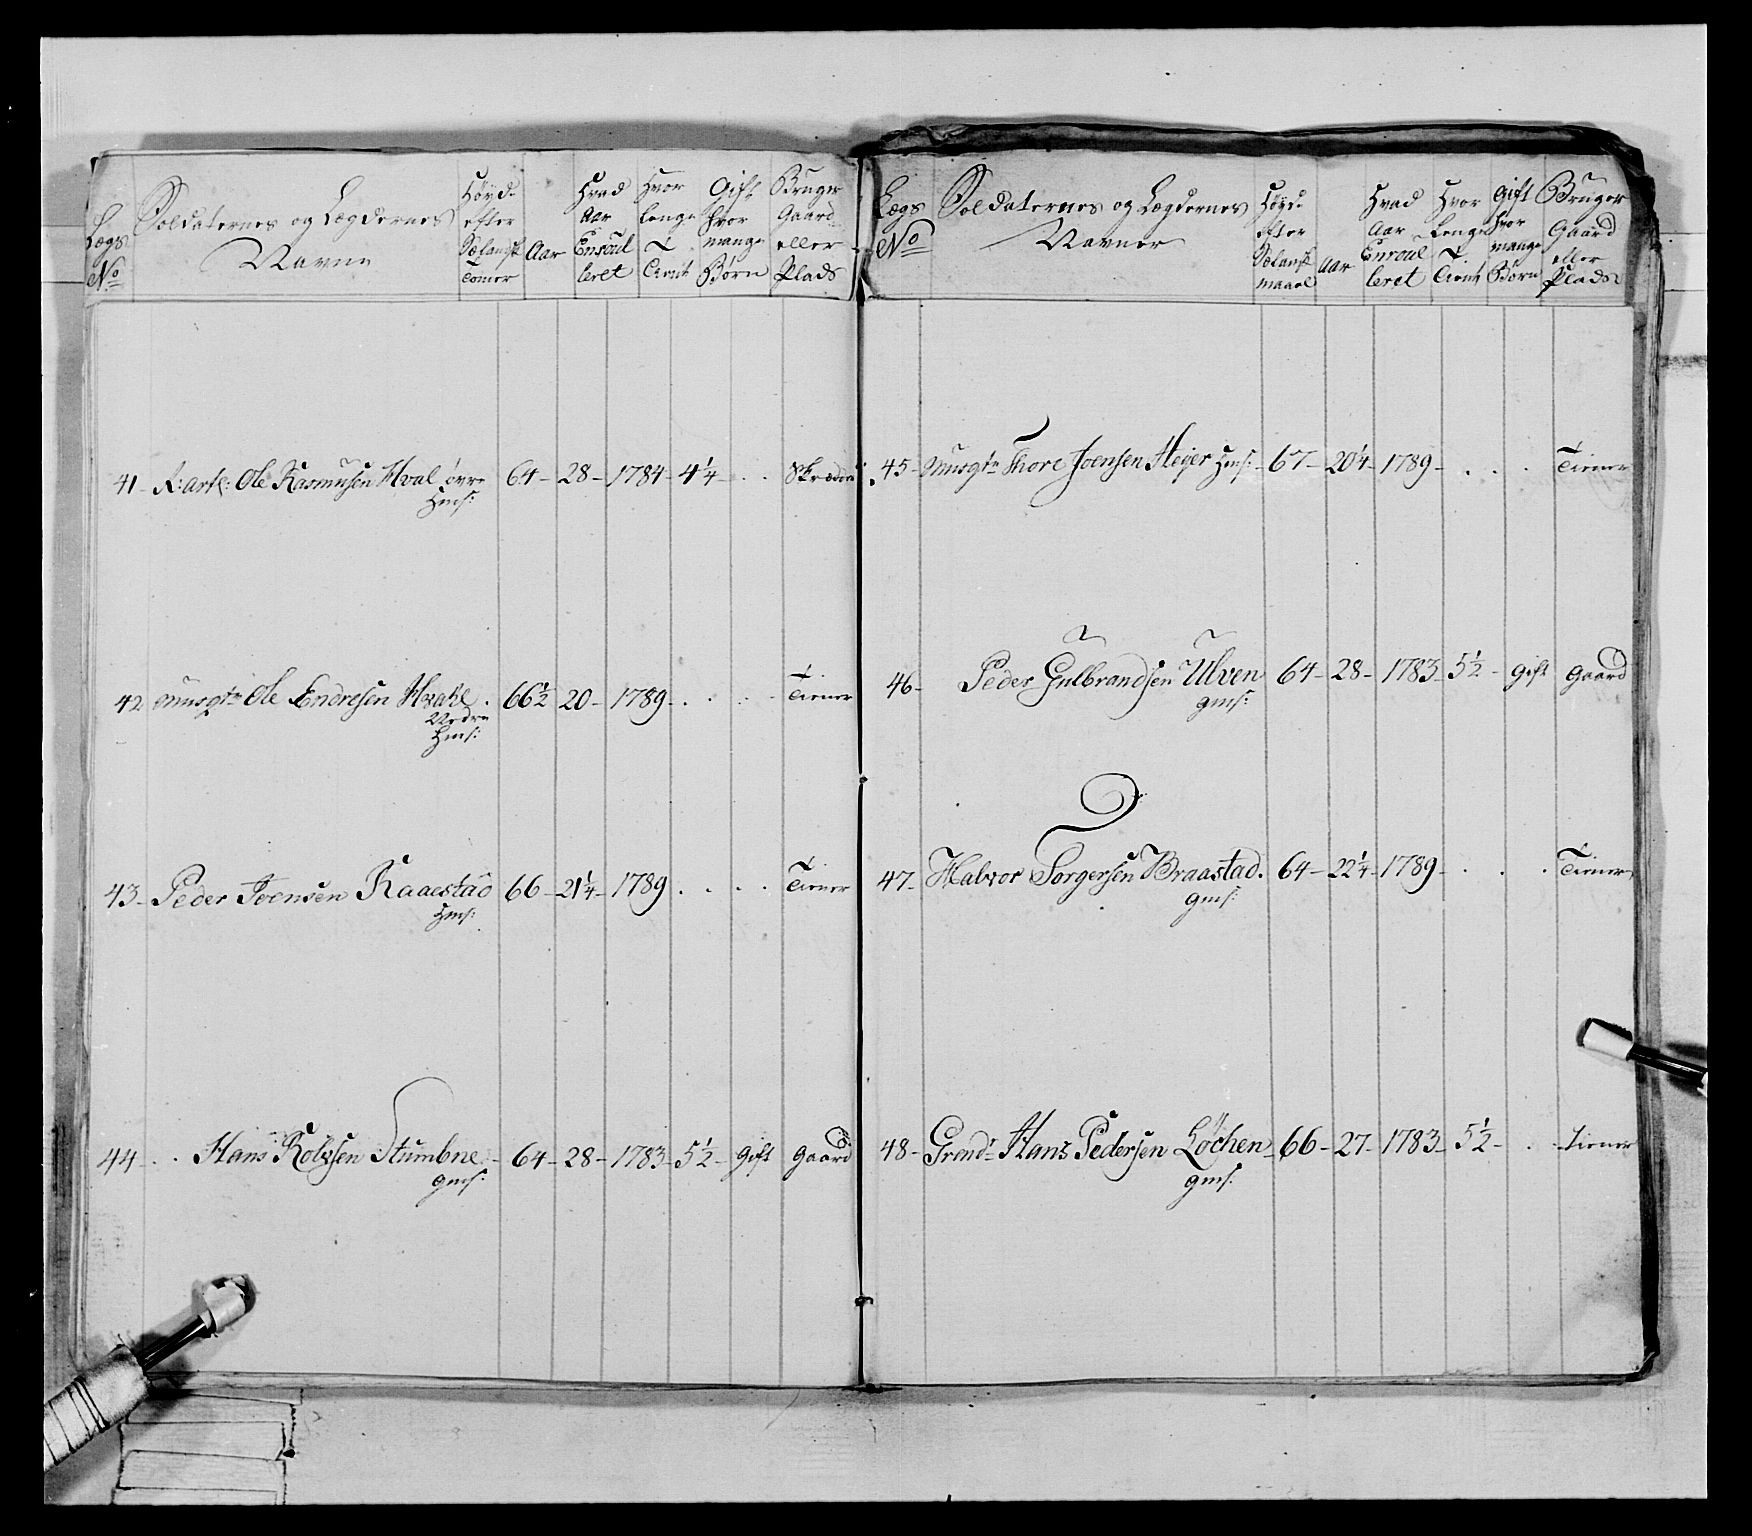 Lægs No
Soldaternes og Lægdernes Navne
Høyd efter Sælansk Tomer
Aar
Hvad Aar Enroulleret
Hvor lenge Tient
Gift hvor mange Børn
Bruger Gaard eller Plads
41 - R: art: Ole Rasmusen Hval øvre 64 - 28 - 1784 - 4 1/4 - . . Skrædder
Hms:
42 Musqtr Ole Endresen Hvale . 66 1/2 20 - 1789 - . . . Tiener
Nedre
Hms:
43 - Peder Joensen Raaestad 66 - 21 1/4 - 1789 . . . . Tiener
Hms:
44 - . . Hans Rolvsen Stumbne - 64 - 28 - 1783 - 5 1/2 - Gift Gaard
Gms:
Lægs No
Soldaternes og Lægdernes Navner
Høyd efter Sælansk maael
Aar
Hvad Aar Enroulleret
Hvor lenge Tient
Gift hvor mange Børn
Bruger Gaard eller Plads
45 - Musqtr Thore Joensen Hejer Hms: - 67 - 20 1/4 - 1789 - . . . Tiener
46 - Peder Gulbrandsen Ulven 64 - 28 - 1783 5 1/2 - Gift Gaard
Gms:
47 - Halvor Torgersen Braastad . 64 - 22 1/4 - 1789 - . . . Tiener
Gms:
48 - Grend: Hans Pedersen Løchen 66 - 27 - 1783 - 5 1/2 - . . Tiener
Gms: